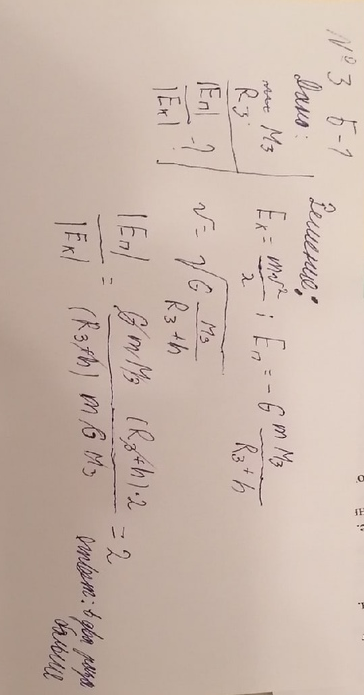 № 3 Б-1
Дано:
m M₃
R₃
|Eп| / |Eк| - ?
Решение:
Eк = mv²/2 ; Eп = -G mM₃ / R₃+h
v = √(G M₃ / R₃+h)
|Eп| / |Eк| = G m M₃ (R₃+h)·2 / (R₃+h) m G M₃ = 2
Ответ: в два раза
больше